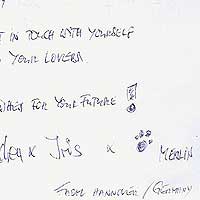 T IN TOUCH WITH YOURSELF
YOUR LOVERS
FOR YOUR FUTURE !
x IRIS x MERLIN
HANNOVER / GERMANY